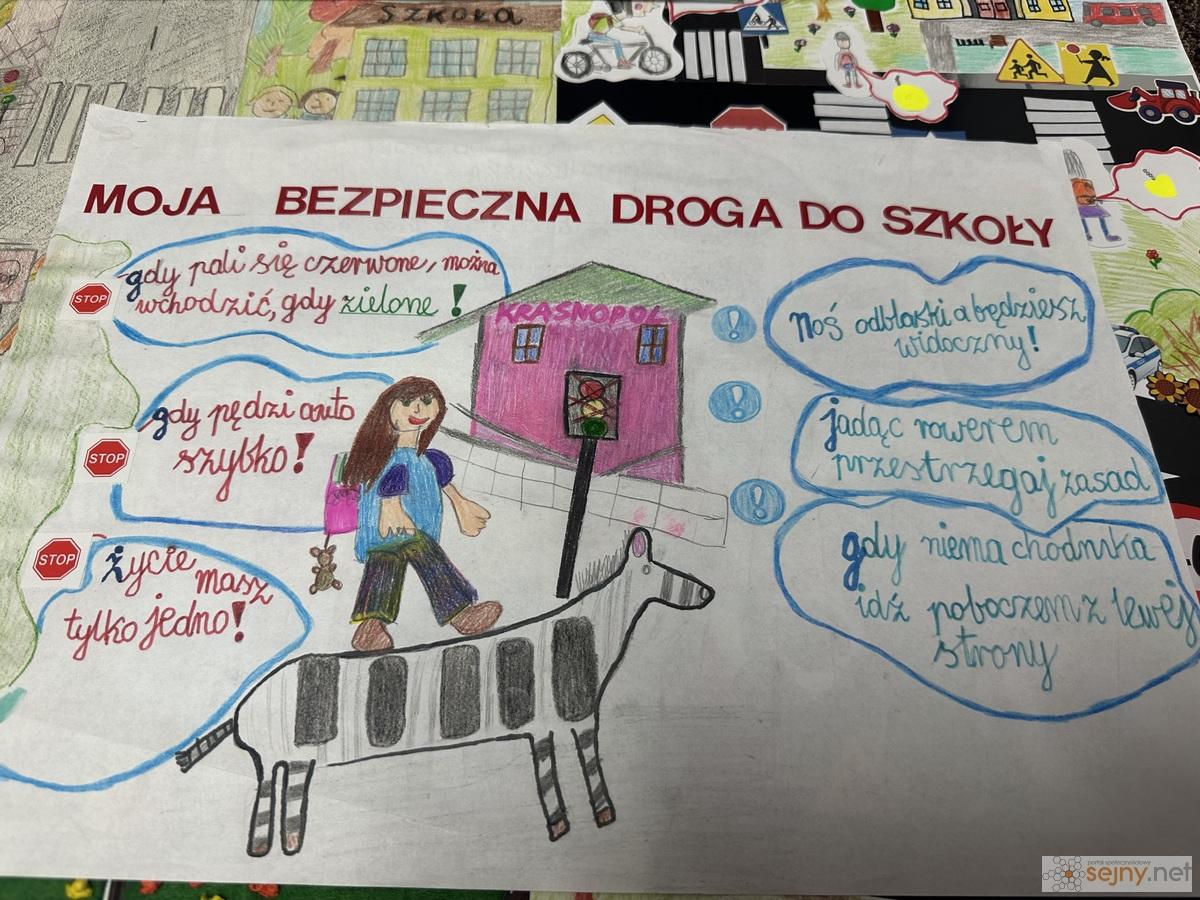 SZKOŁA
MOJA BEZPIECZNA DROGA DO SZKOŁY
STOP
gdy pali się czerwone, można
wchodzić, gdy zielone!
STOP
gdy pędzi auto
szybko!
STOP
Życie masz
tylko jedno!
KRASNOPOL
!
Noś odblaski a będziesz
widoczny!
!
jadąc rowerem
przestrzegaj zasad
!
gdy niema chodnika
idź poboczem z lewej
strony
portal społecznościowy
sejny.net